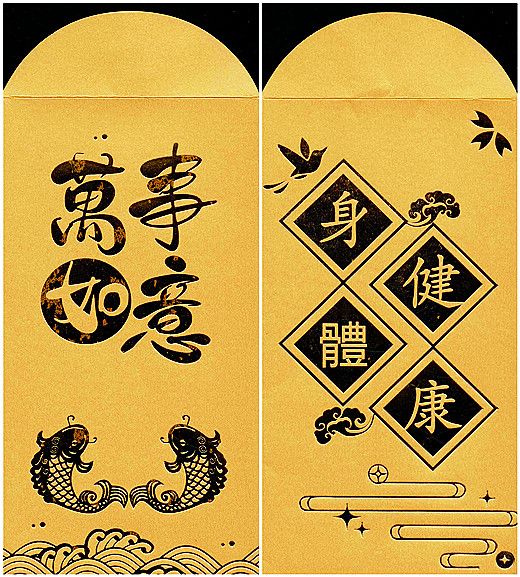 萬事
如意
身
健
體
康